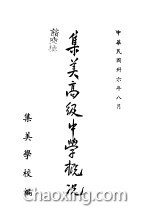 中華民國卅六年八月
集美高級中學概況
集美學校編
Chaoxing.com